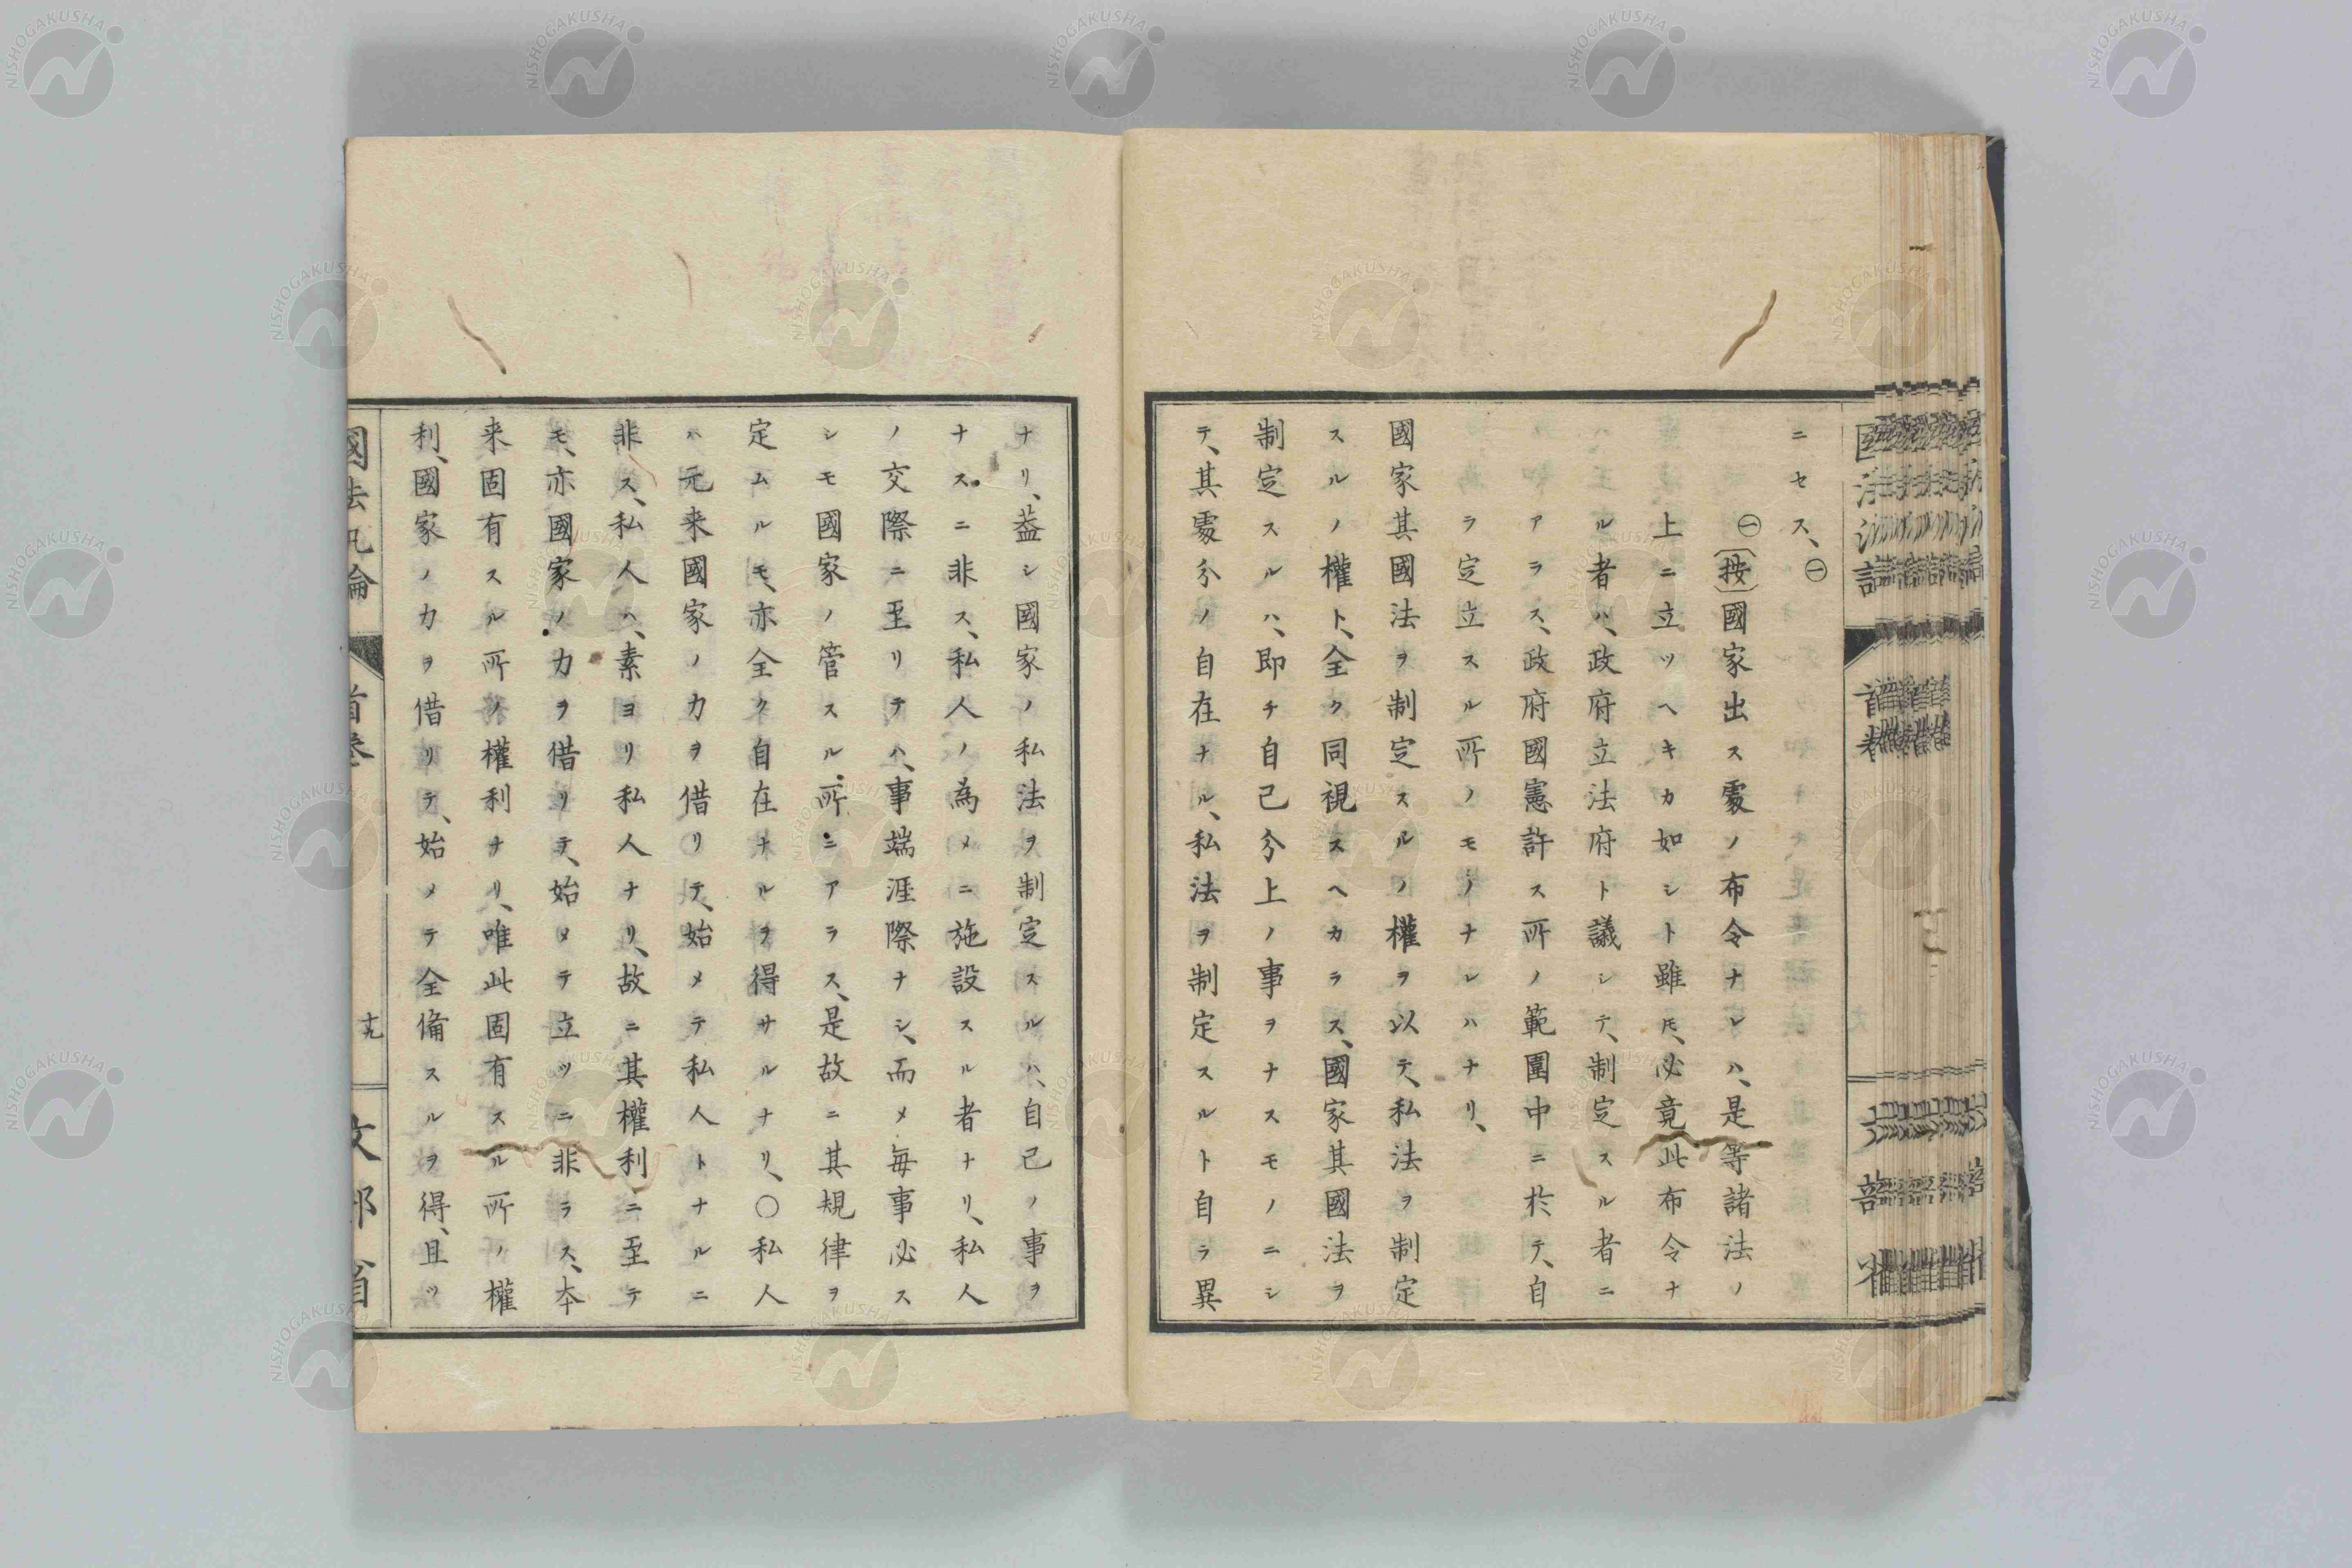 ニセス、㊀
㊀〔按〕國家出ス處ノ布令ナレハ、是等諸法ノ
上ニ立ツヘキカ如シト雖𪜈、必竟此布令ナ
ル者ハ、政府立法府ト議シテ、制定スル者ニ
アラス、政府國憲許ス所ノ範圍中ニ於テ、自
ラ定立スル所ノモノナレハナリ、
國家其國法ヲ制定スルノ權ヲ以テ、私法ヲ制定
スルノ權ト、全ク同視スヘカラス、國家其國法ヲ
制定スルハ、即チ自己分上ノ事ヲナスモノニシ
テ、其處分ノ自在ナル、私法ヲ制定スルト自ラ異
ナリ、蓋シ國家ノ私法ヲ制定スルハ、自己ノ事ヲ
ナスニ非ス、私人ノ為メニ施設スル者ナリ、私人
ノ交際ニ至リテハ、事端涯際ナシ、而メ毎事必ス
シモ國家ノ管スル所ニアラス、是故ニ其規律ヲ
定ムルモ、亦全ク自在ナルヲ得サルナリ、〇私人
ハ元来國家ノ力ヲ借リテ、始メテ私人トナルニ
非ス、私人ハ、素ヨリ私人ナリ、故ニ其權利ニ至テ
モ、亦國家ノ力ヲ借リテ、始メテ立ツニ非ラス、本
来固有スル所ノ權利ナリ、唯此固有スル所ノ權
利、國家ノ力ヲ借リテ、始メテ全備スルヲ得、且ツ
國法汎論 首巻 十九 文部省